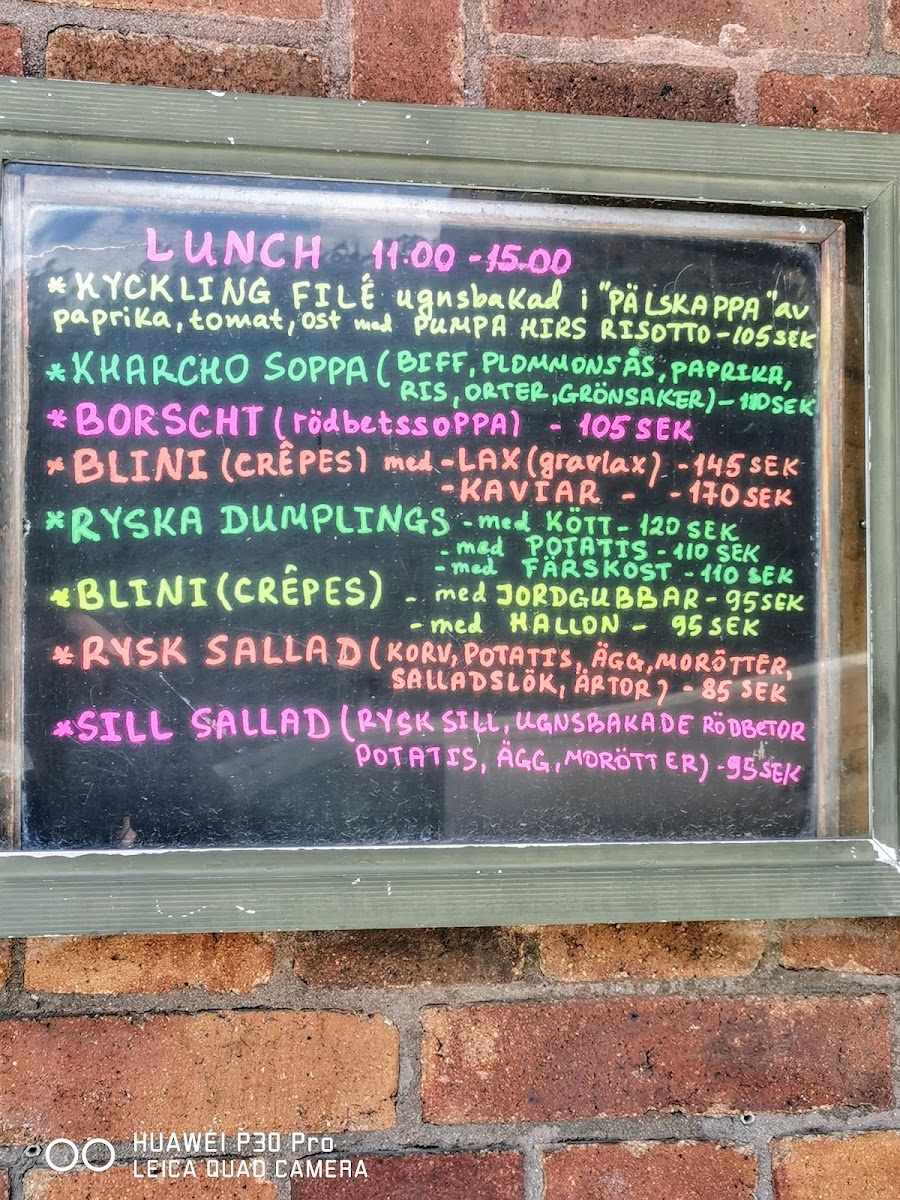 LUNCH 11.00 - 15.00
*KYCKLING FILÉ ugnsbakad i "PÄLSKAPPA" av
paprika, tomat, ost med PUMPA HIRS RISOTTO - 105 SEK
*KHARCHO SOPPA (BIFF, PLOMMONSÅS, PAPRIKA,
RIS, ORTER, GRÖNSAKER) - 110 SEK
*BORSCHT (rödbetssoppa) - 105 SEK
*BLINI (CRÊPES) med - LAX (gravlax) - 145 SEK
- KAVIAR - - 170 SEK
*RYSKA DUMPLINGS - med KÖTT - 120 SEK
- med POTATIS - 110 SEK
- med FÄRSKOST - 110 SEK
*BLINI (CRÊPES) - med JORDGUBBAR - 95 SEK
- med HALLON - 95 SEK
*RYSK SALLAD (KORV, POTATIS, ÄGG, MORÖTTER,
SALLADSLÖK, ÄRTOR) - 85 SEK
*SILL SALLAD (RYSK SILL, UGNSBAKADE RÖDBETOR
POTATIS, ÄGG, MORÖTTER) - 95 SEK
HUAWEI P30 Pro
LEICA QUAD CAMERA